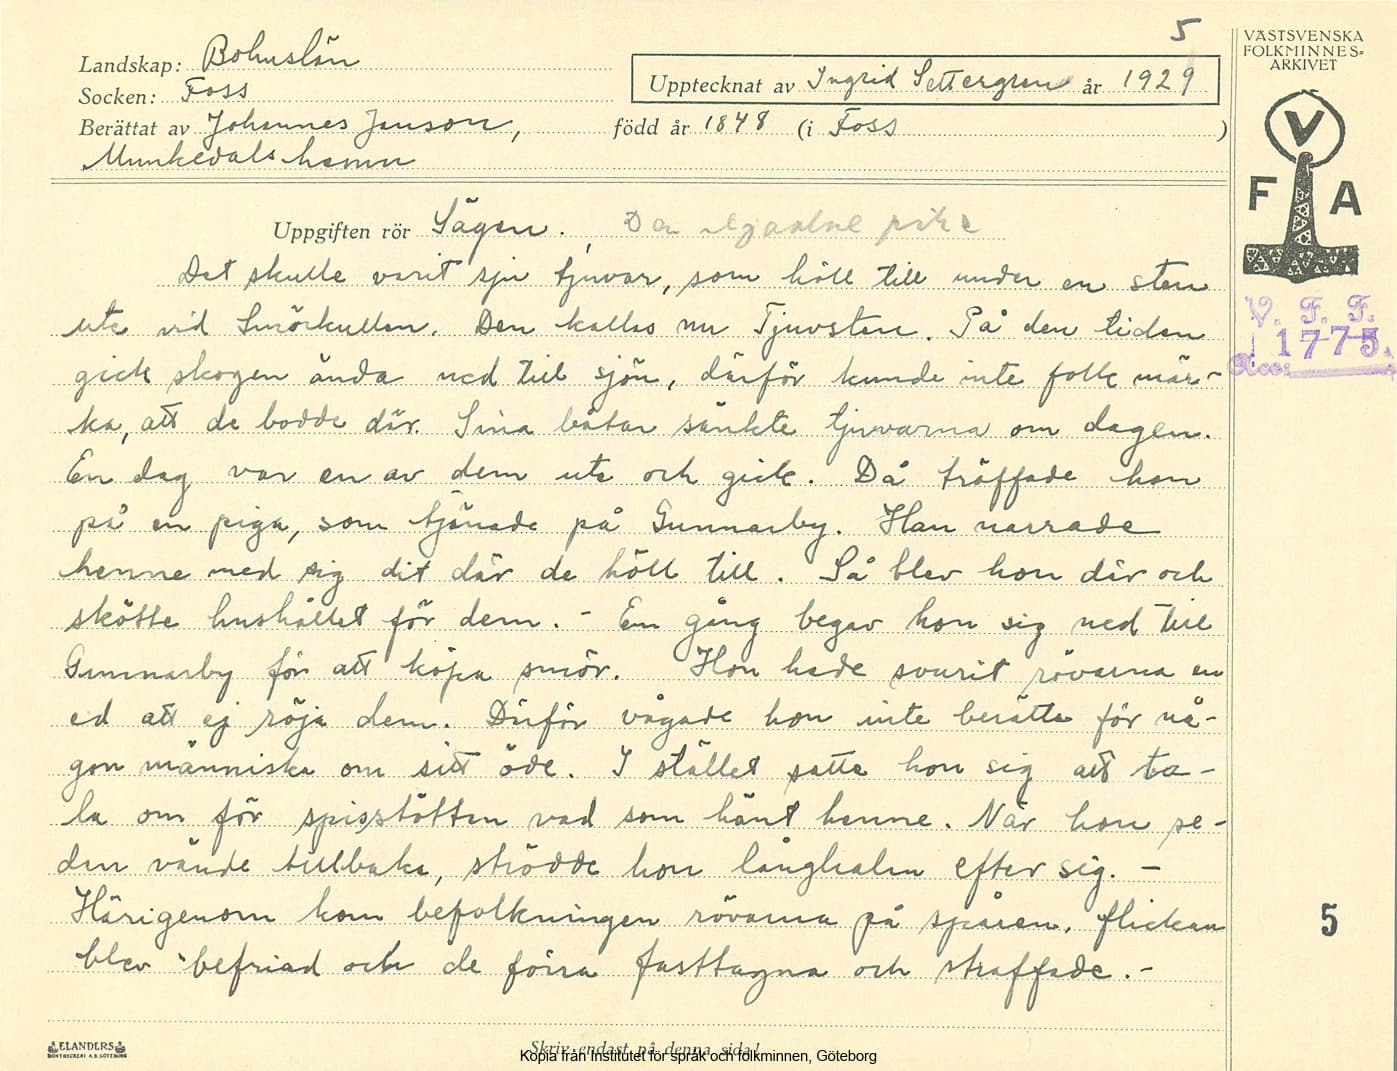 5
VÄSTSVENSKA
FOLKMINNES=
ARKIVET
Landskap: Bohuslän
Upptecknat av Ingrid Settergren år 1929
Socken: Foss
Berättat av Johannes Janson, född år 1848 (i Foss )
Munkedals hamn
V
F A
Uppgiften rör Sägen.
Det skulle varit sju tjuvar, som höll till under en sten
ute vid Smörkullen. Den kallas nu Tjuvsten. På den tiden
gick skogen ända ned till sjön, därför kunde inte folk mär-
ka, att de bodde där. Sina båtar sänkte tjuvarna om dagen.
En dag var en av dem ute och gick. Då träffade han
på en piga, som tjänade på Gunnarby. Han narrade
henne med sig dit där de höll till. Så blev hon där och
skötte hushållet för dem. - En gång begav hon sig ned till
Gunnarby för att köpa smör. Hon hade svurit rövarna en
ed att ej röja dem. Därför vågade hon inte berätta för nå-
gon människa om sitt öde. I stället satte hon sig att ta-
la om för spisstötten vad som hänt henne. När hon se-
dan vände tillbaka, strödde hon långhalm efter sig. -
Härigenom kom befolkningen rövarna på spåren, flickan
blev befriad och de förra fasttagna och straffade. -
V. F. F.
1775
Acc:
5
ELANDERS
BOKTRYCKERI A.B. GÖTEBORG
Skriv endast på denna sida!
Kopia från Institutet för språk och folkminnen, Göteborg